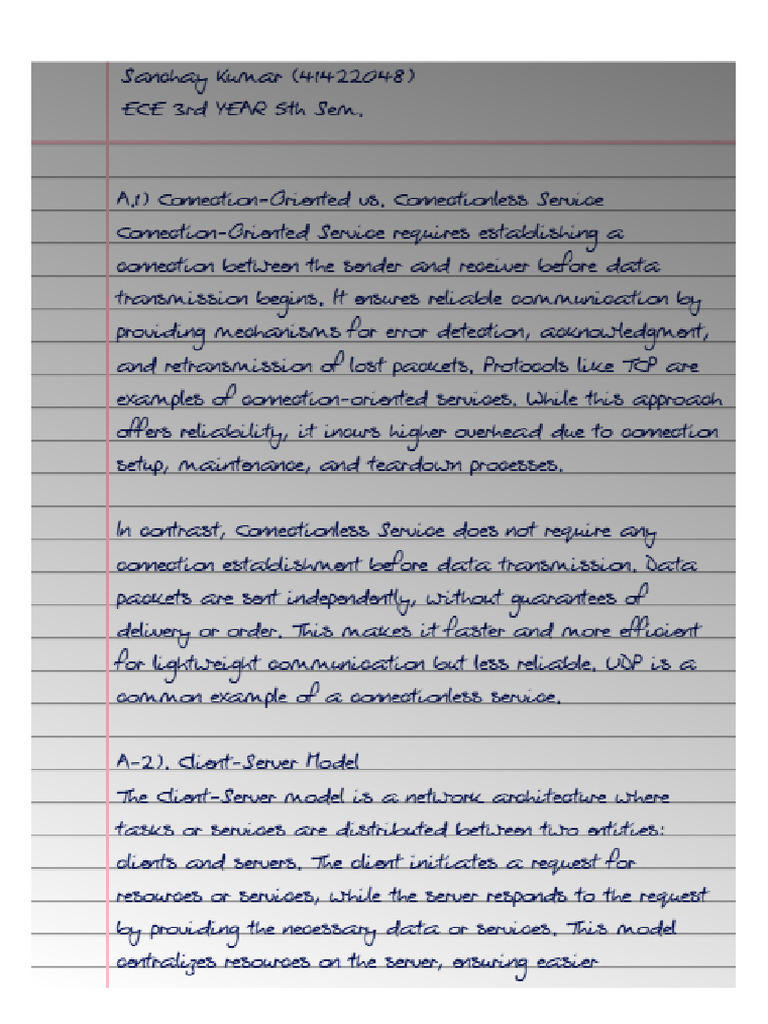 Sanchay Kumar (41422048)
ECE 3rd YEAR 5th Sem.
A.1) Connection-Oriented vs. Connectionless Service
Connection-Oriented Service requires establishing a
connection between the sender and receiver before data
transmission begins. It ensures reliable communication by
providing mechanisms for error detection, acknowledgment,
and retransmission of lost packets. Protocols like TCP are
examples of connection-oriented services. While this approach
offers reliability, it incurs higher overhead due to connection
setup, maintenance, and teardown processes.
In contrast, Connectionless Service does not require any
connection establishment before data transmission. Data
packets are sent independently, without guarantees of
delivery or order. This makes it faster and more efficient
for lightweight communication but less reliable. UDP is a
common example of a connectionless service.
A-2). Client-Server Model
The Client-Server model is a network architecture where
tasks or services are distributed between two entities:
clients and servers. The client initiates a request for
resources or services, while the server responds to the request
by providing the necessary data or services. This model
centralizes resources on the server, ensuring easier